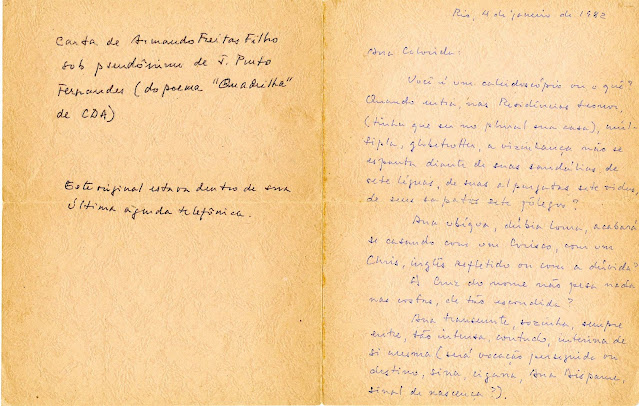 Carta de Armando Freitas Filho
sob pseudônimo de J. Pinto
Fernandes (do poema "Quadrilha"
de CDA)
Este original estava dentro de sua
última agenda telefônica.
Rio, 4 de janeiro de 1982
Ana
Você é um caleidoscópio ou o quê?
Quando entra, nas Residências
(tinha que ser no plural sua casa),
globetrotter, a vizinhança não se
espanta diante de suas sandálias de
sete léguas, de suas alpargatas sete vidas,
de seus sapatos sete fôlegos?
Ana ubíqua, dúbia loura, acabará
se casando com um Corisco, com um
Chris, inglês refletido ou com a dúvida?
A Cruz do nome não pesa nada
nas costas, de tão escondida?
Ana transeunte, sozinha, sempre
entre, tão intensa, contudo, interina de
si mesma (será vocação perseguida ou
destino, sina, cigana, Ana
sinal de nascença?).